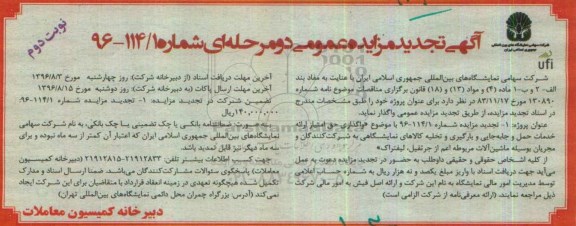 نوبت دوم
شرکت سهامی نمایشگاه‌های بین‌المللی
جمهوری اسلامی ایران
ufi
آگهی تجدید مزایده عمومی دو مرحله‌ای شماره ۹۶-۱۱۴/۱
شرکت سهامی نمایشگاه‌های بین‌المللی جمهوری اسلامی ایران با عنایت به مفاد بند
الف-۲ و ب-۱ ماده (۴) و مواد (۱۳) و (۱۸) قانون برگزاری مناقصات موضوع نامه شماره
۱۳۰۸۹۰ مورخ ۸۳/۱۱/۱۷ در نظر دارد برای عنوان پروژه خود را طبق مشخصات مندرج
در اسناد تجدید مزایده، از طریق تجدید مزایده عمومی واگذار نماید.
عنوان پروژه: ۱- تجدید مزایده شماره ۹۶-۱۱۴/۱ با موضوع واگذاری حق امتیاز ارائه
خدمات حمل و جابه‌جایی و بارگیری و تخلیه کالاهای نمایشگاهی به شرکت‌کنندگان و
مجریان بوسیله ماشین‌آلات مربوطه اعم از جرثقیل، لیفتراک»
از کلیه اشخاص حقوقی و حقیقی داوطلب به حضور در تجدید مزایده دعوت به عمل
می‌آید جهت دریافت اسناد با واریز مبلغ یکصد و نه هزار ریال به شماره حساب اعلامی
توسط مدیریت امور مالی نمایشگاه به نام این شرکت و ارائه اصل فیش به امور مالی شرکت
ذیل مراجعه نمایند. (ارائه معرفی‌نامه از شرکت الزامی است)
آخرین مهلت دریافت اسناد (از دبیرخانه شرکت) روز چهارشنبه مورخ ۱۳۹۶/۸/۳
آخرین مهلت ارسال پاکات (به دبیرخانه شرکت) روز دوشنبه مورخ ۱۳۹۶/۸/۱۵
تضمین شرکت در تجدید مزایده: ۱- تجدید مزایده شماره ۹۶-۱۱۴/۱
ریال
به صورت ضمانتنامه بانکی یا چک تضمینی یا چک بانکی، به نام شرکت سهامی
نمایشگاه‌های بین‌المللی جمهوری اسلامی ایران که اعتبار آن کمتر از سه ماه نبوده و برای
سه ماه دیگر نیز قابل تمدید باشد.
جهت کسب اطلاعات بیشتر تلفن ۲۱۹۱۲۸۳۳-۲۱۹۱۲۸۱۵ (دبیرخانه کمیسیون
معاملات) پاسخگوی سئوالات مشارکت‌کنندگان می‌باشد. ضمنا ارسال اسناد و مدارک
تکمیل شده هیچگونه تعهدی در زمینه انعقاد قرارداد با متقاضیان برای این شرکت ایجاد
نمی‌کند. (آدرس: بزرگراه چمران محل دائمی نمایشگاه‌های بین‌المللی تهران)
دبیرخانه کمیسیون معاملات